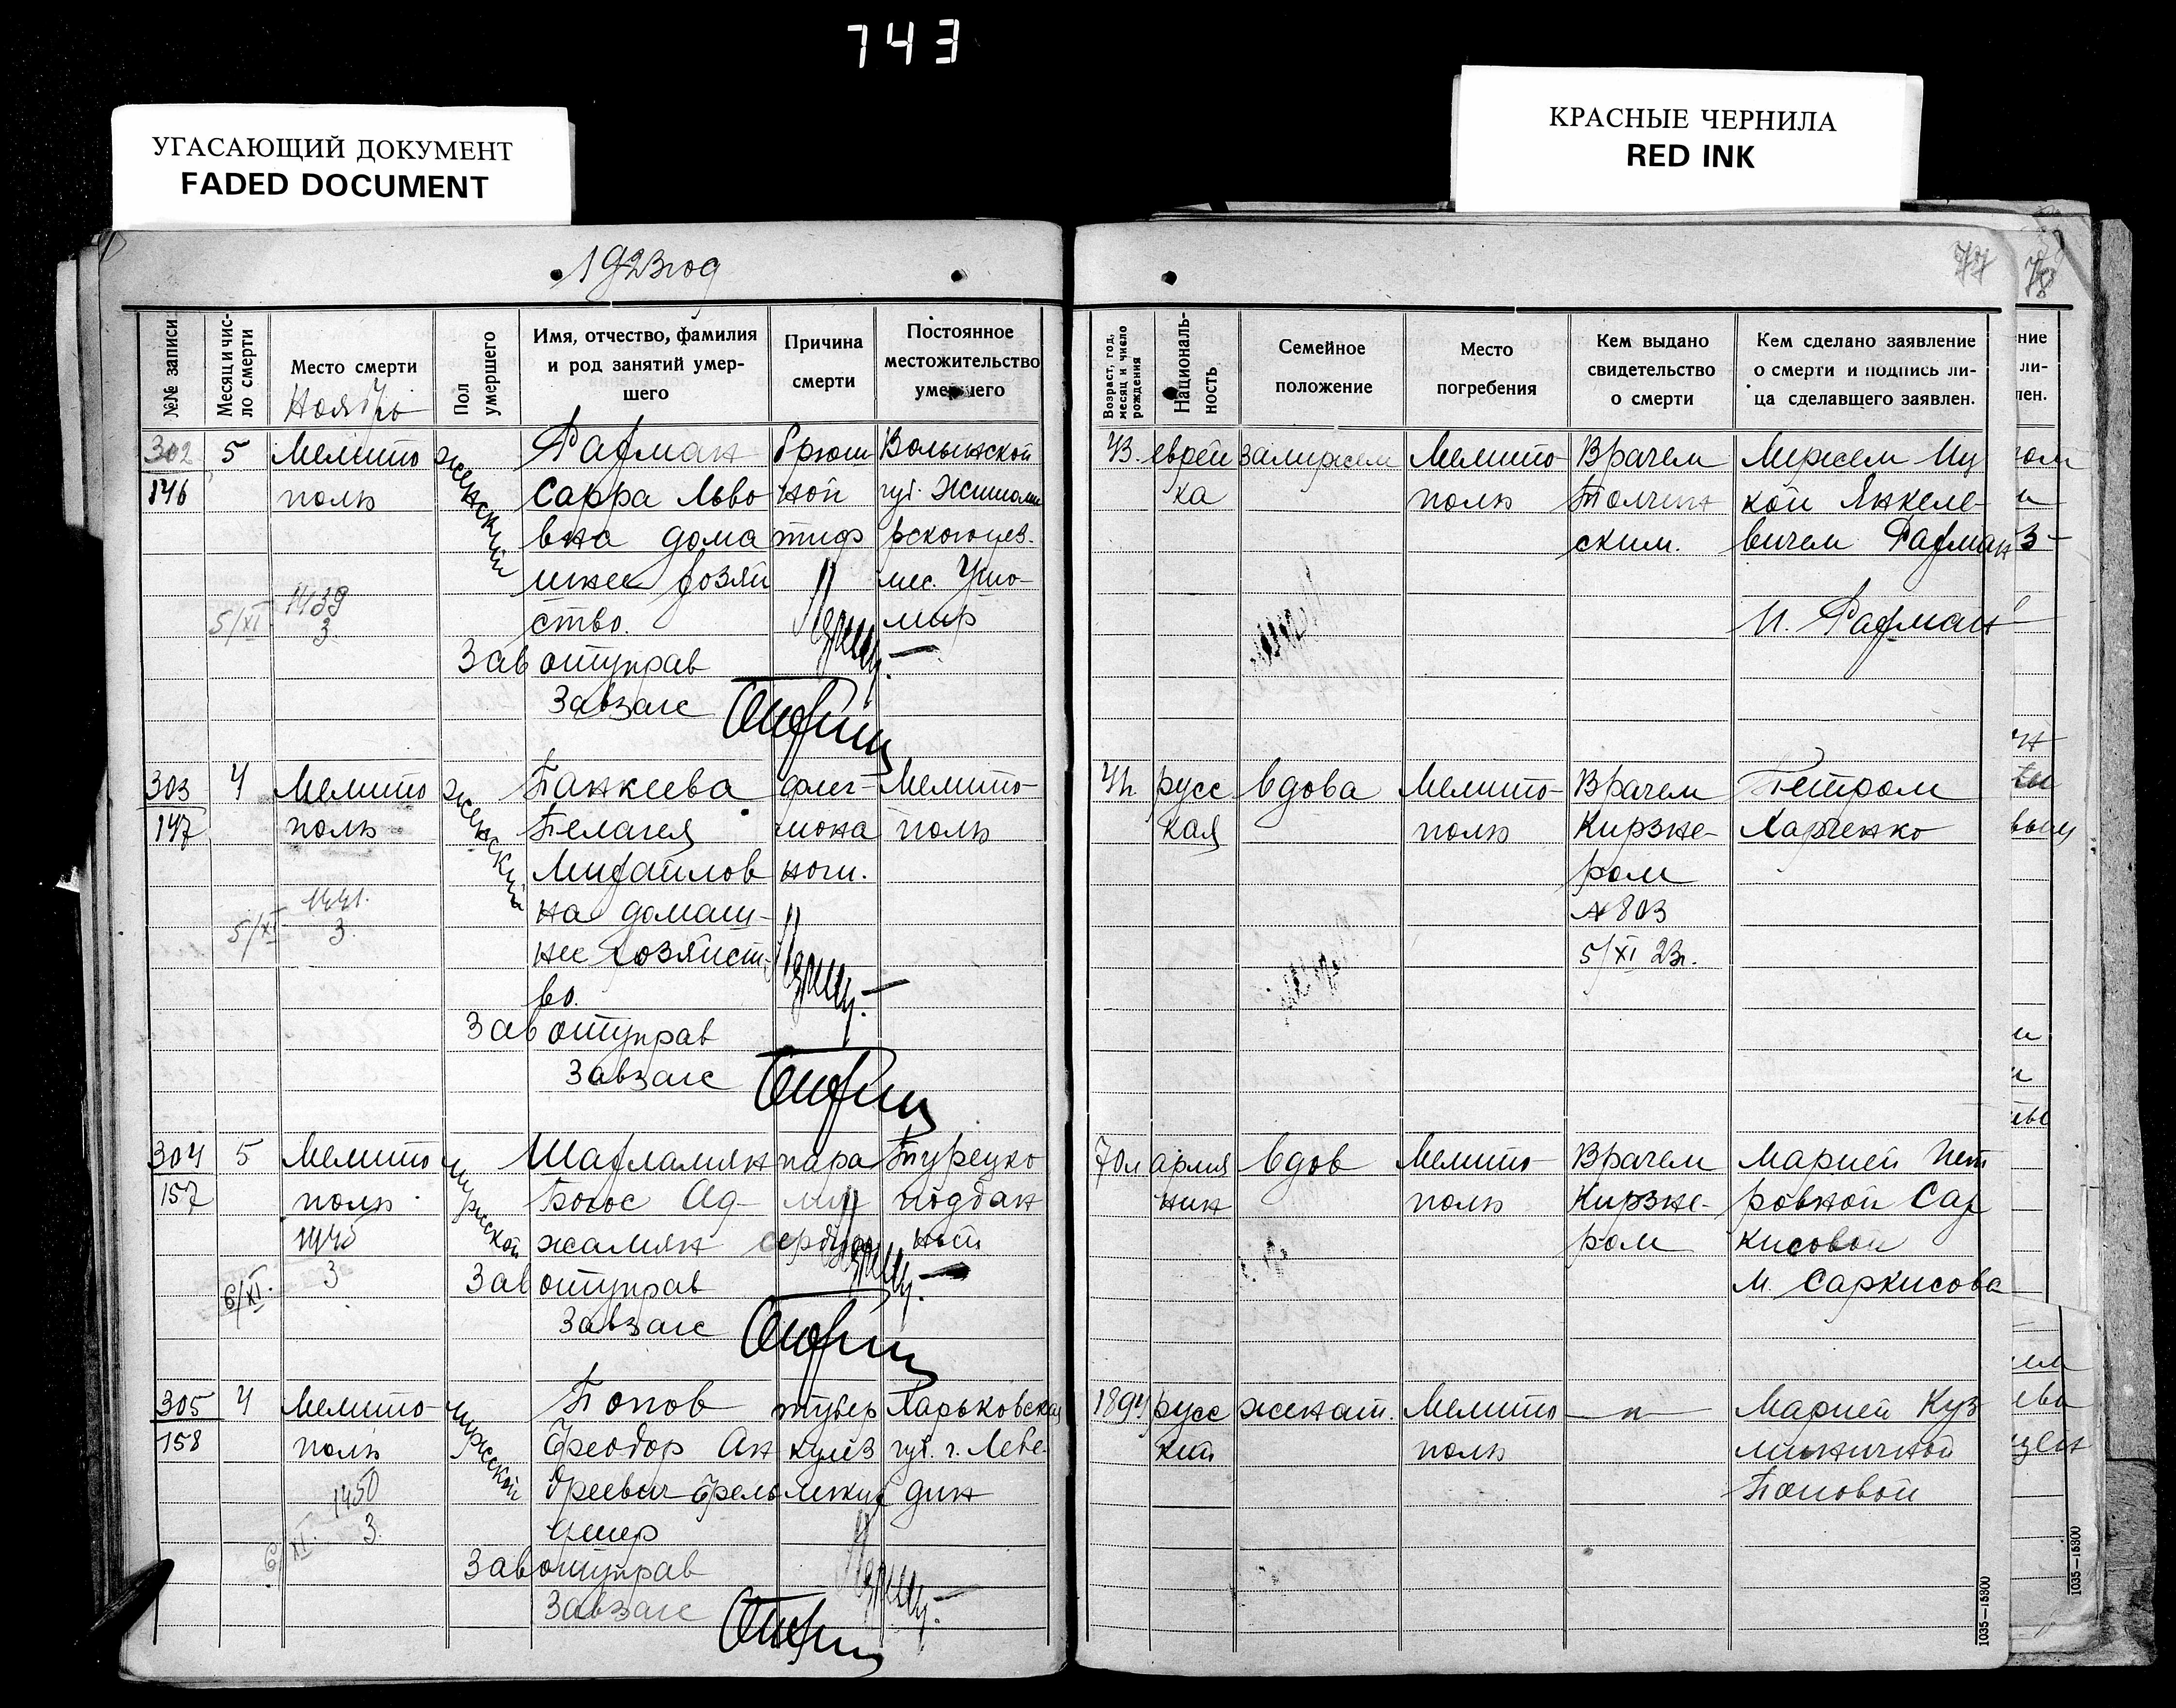 743
УГАСАЮЩИЙ ДОКУМЕНТ
FADED DOCUMENT
КРАСНЫЕ ЧЕРНИЛА
RED INK
1923 год
77
78
№№ записи
Месяц и чис-
ло смерти
Место смерти
Ноябрь
Пол
умершего
Имя, отчество, фамилия
и род занятий умер-
шего
Причина
смерти
Постоянное
местожительство
умершего
Возраст, год,
месяц и число
рождения
Националь-
ность
Семейное
положение
Место
погребения
Кем выдано
свидетельство
о смерти
Кем сделано заявление
о смерти и подпись ли-
ца сделавшего заявлен.
302
146
5
Мелито
поль
1439
3.
5/XI
женский
Рахман
Сарра Льво
вна дома
шнее хозяй
ство.
брюш
ной
тиф
Волынской
губ.
мес. Ушо-
мир
Завотуправ
Завзагс
43.
еврей
ка
замужем
Мелито-
поль
Врачем
Толчин
ским.
Мужем Иц
кой Янкеле-
вичем Рахман
И. Рахман
303
147
4
Мелито
поль
1441.
3.
5/XI
женский
Панкеева
Пелагея
Михайлов
на домаш-
нее хозяйст-
во.
флег-
мона
ноги.
Мелито-
поль
Завотуправ
Завзагс
русс
кая
вдова
Мелито-
поль
Врачем
Кирзне-
ром
№ 803
5/XI 23г.
Петром
Харченко
304
157
5
Мелито
поль
1445
3
6/XI.
мужской
Шахламян
Богос Ад-
жамян
пара
лич
сердца
Турецко
поддан
ный
Завотуправ
Завзагс
70л
армя
нин
вдов
Мелито-
поль
Врачем
Кирзне-
ром
Марией Пет
ровной Сар
кисовой
М. Саркисова
305
158
4
Мелито
поль
1450
3.
6/XI.
мужской
Попов
Феодор Ан
дреевич Фель
дшер
тубер
кулез
легких
Харьковская
губ. г. Лебе-
дин
Завотуправ
Завзагс
1894
русс
кий
женат.
Мелито
поль
—"—
Марией Куз
миничной
Поповой
1035—15800
1035—15800